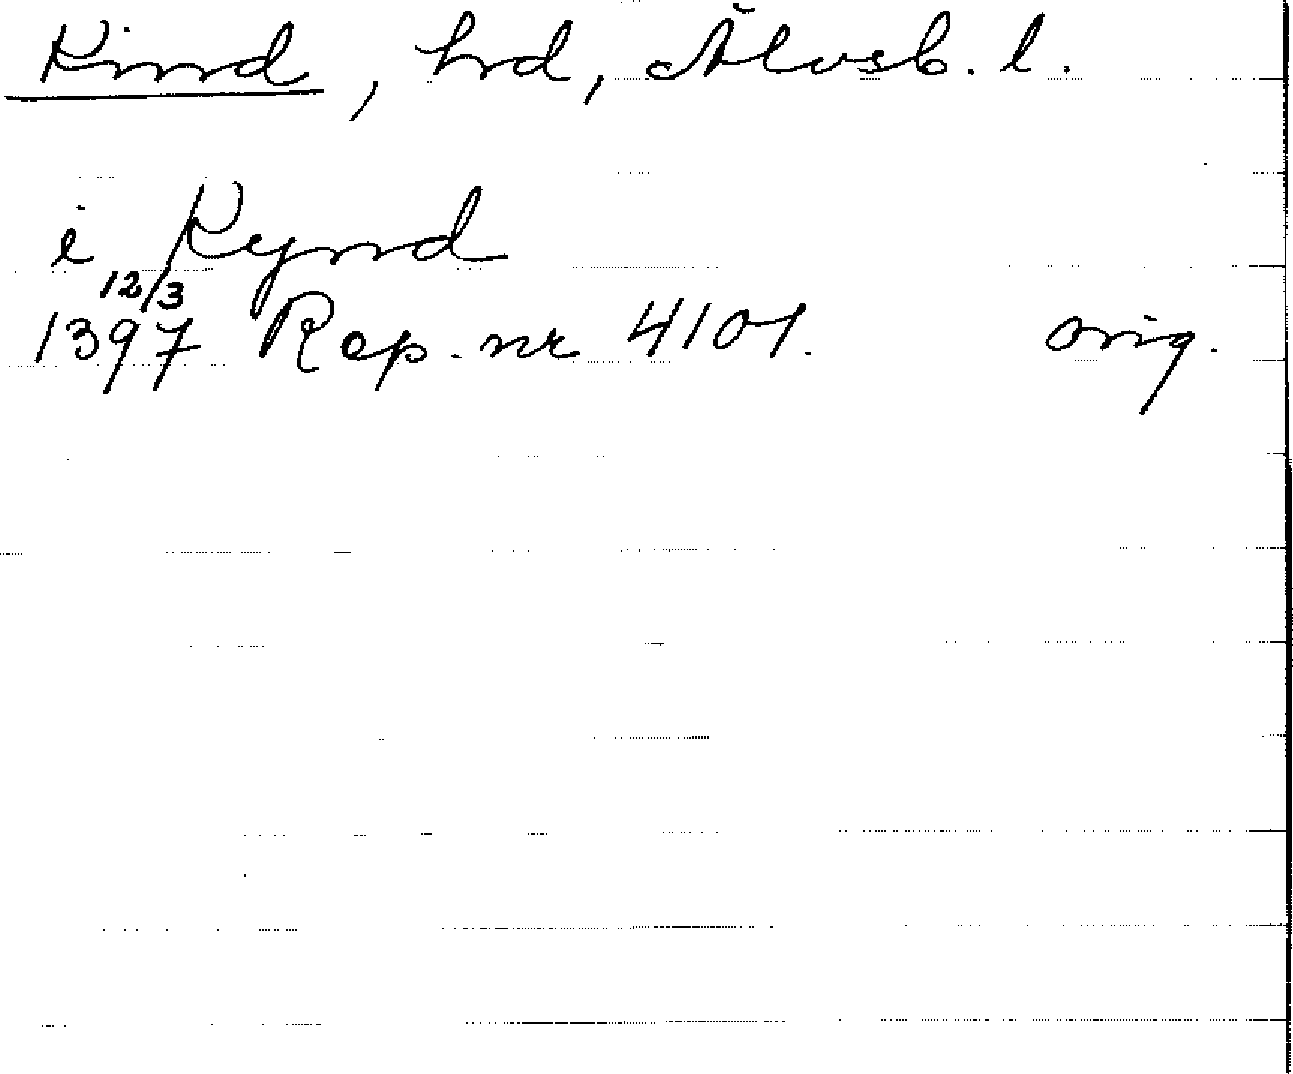 Kind, hrd, Älvsb. l.
i Kynd
12/3
1397 Rep. nr 4101. orig.